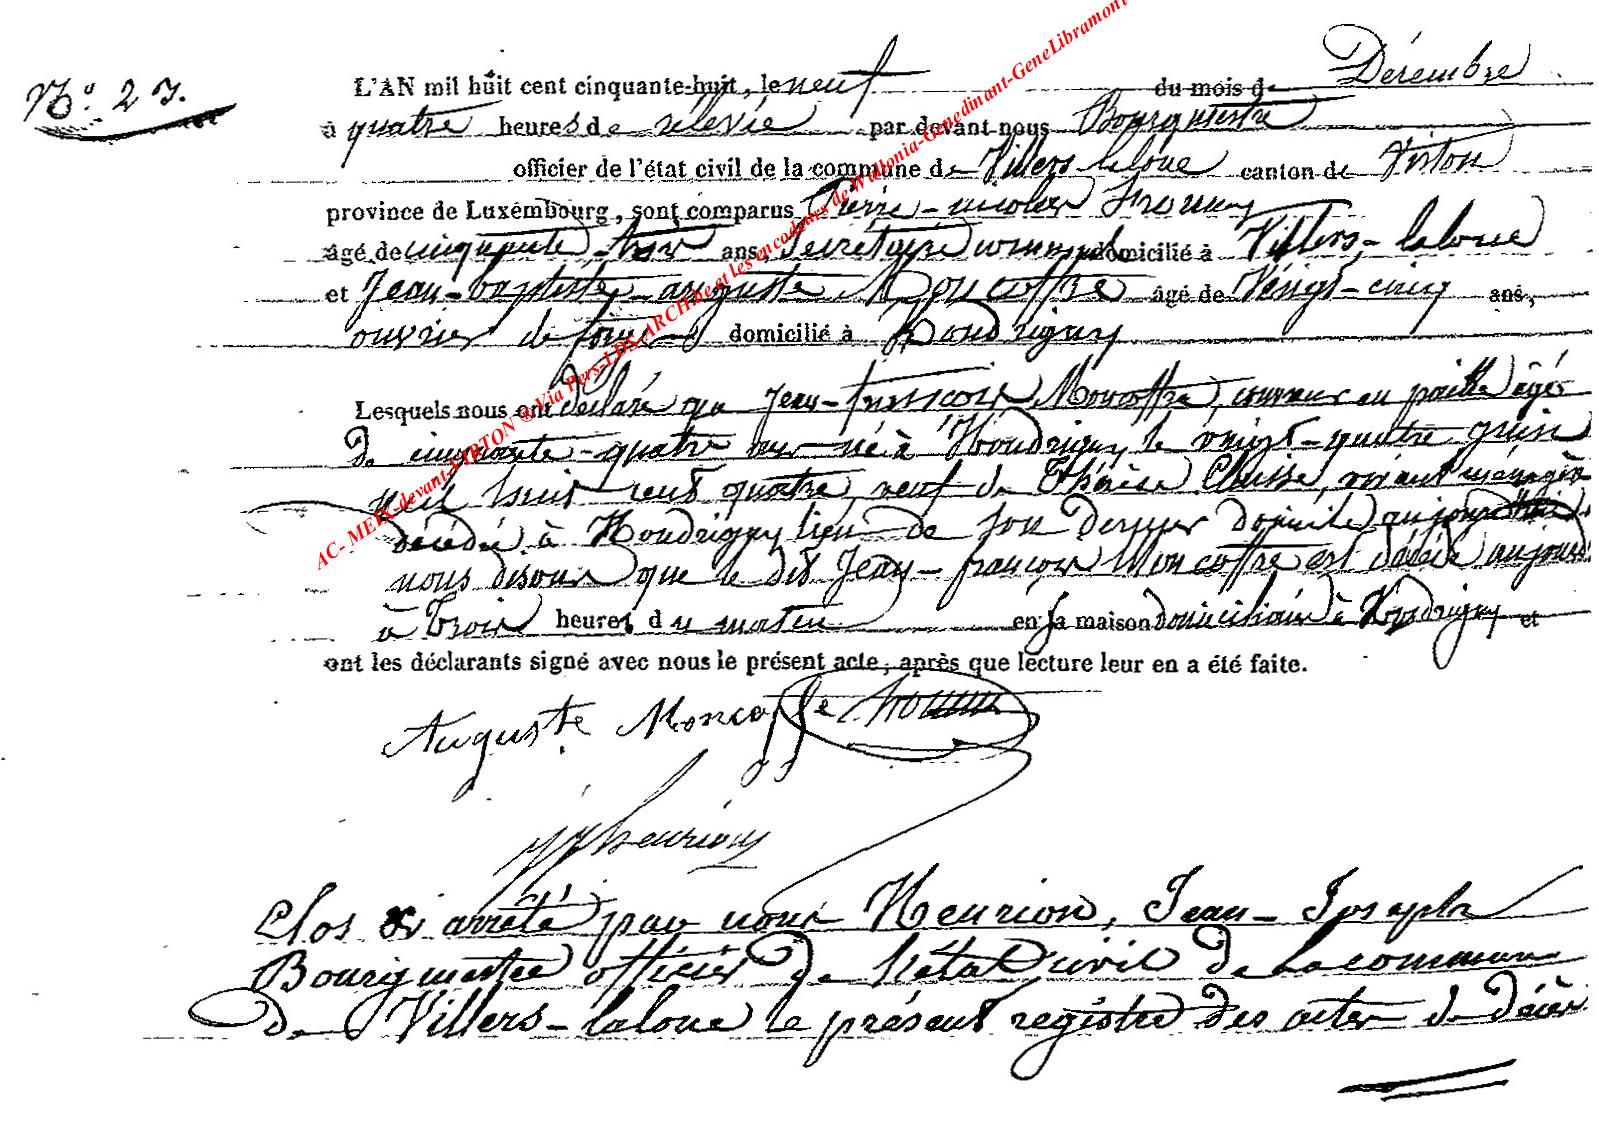 N.° 23.
L'AN mil huit cent cinquante-huit, le neuf du mois de Décembre
à quatre heures de relevée par devant nous Bourgmestre
officier de l'état civil de la commune de Villers laloue canton de Virton
province de Luxembourg, sont comparus Pierre-nicolas
âgé de cinquante-trois ans, Secrétaire communal domicilié à Villers-laloue
et Jean-baptiste-auguste Moncoffre âgé de Vingt-cinq ans,
ouvrier de domicilié à Houdrigny
Lesquels nous ont déclaré que Jean-françois Moncoffre, couvreur en paille âgé
de cinquante-quatre ans né à Houdrigny le vingt-quatre juin
mil huit cent quatre, veuf de Thérèse vivant ménagère
décédée à Houdrigny lieu de son dernier domicile
nous disons que le dit Jean-françois Moncoffre est décédé aujourd
à Trois heures du matin en sa maison domiciliaire à Houdrigny et
ont les déclarants signé avec nous le présent acte, après que lecture leur en a été faite.
Auguste Moncoffe
JJ henrion
Clos & arrêté par nous Henrion, Jean-Joseph
Bourgmestre officier de l'état civil de la commune
de Villers-laloue le présent registre des actes de décès
AC- MEIX-devant-VIRTON ® Via Pers-LDS-ARCH.be et les encodeurs de Wallonia-Genedinant-GeneLibramont